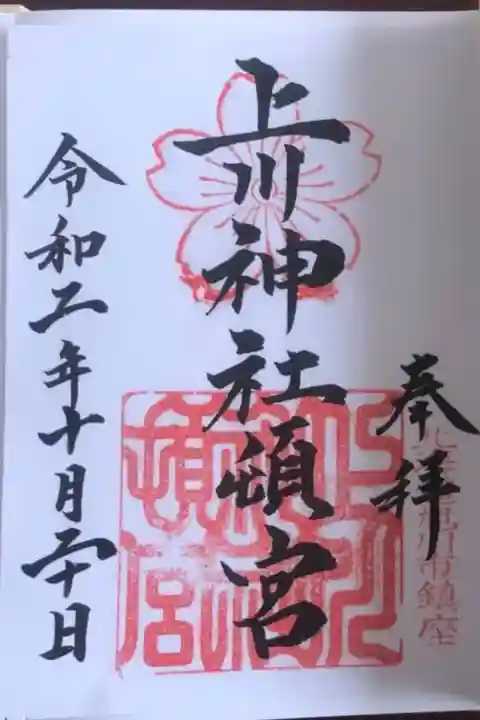 奉拝
旭川市鎮座
上川神社頓宮
令和二年十月二十日